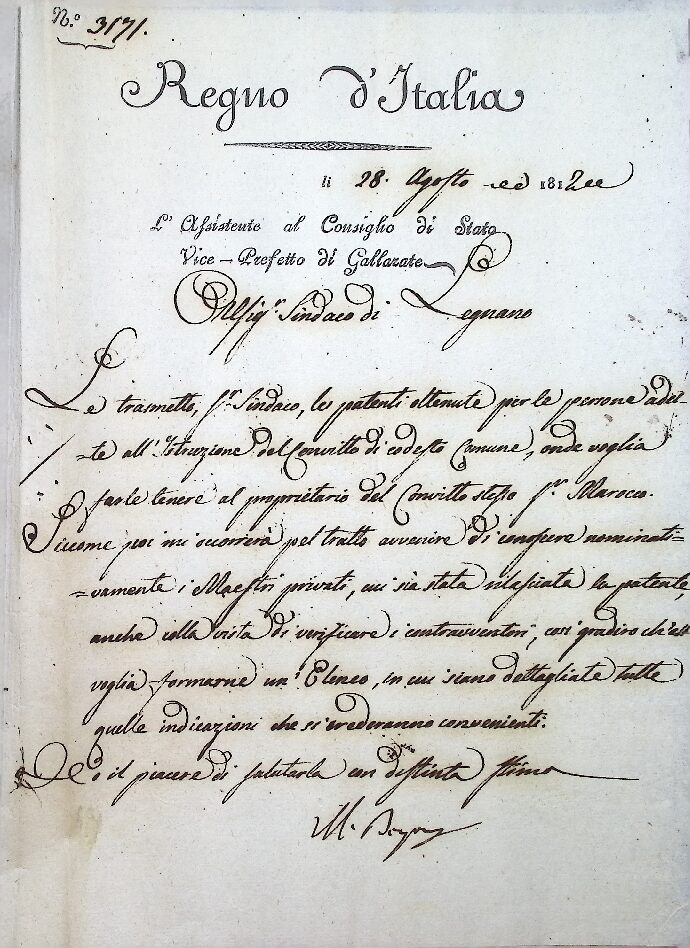 N.° 3171.
Regno d'Italia
li 28. Agosto 1812
L'Assistente al Consiglio di Stato
Vice-Prefetto di Gallarate
Al Sig.r Sindaco di Legnano
Le trasmetto, S.r Sindaco, le patenti ottenute per le persone adet-
-te all'Istruzione del Convitto di codesto Comune, onde voglia
farle tenere al proprietario del Convitto stesso S.r Marocco.
Siccome poi mi occorrerà pel tratto avvenire di conoscere nominati-
=vamente i Maestri privati, cui sia stata rilasciata la patente,
anche colla vista di verificare i contravventori, così gradirò ch'
voglia formarne un'Elenco, in cui siano dettagliate tutte
quelle indicazioni che si crederanno convenienti.
Ho il piacere di salutarla con distinta stima